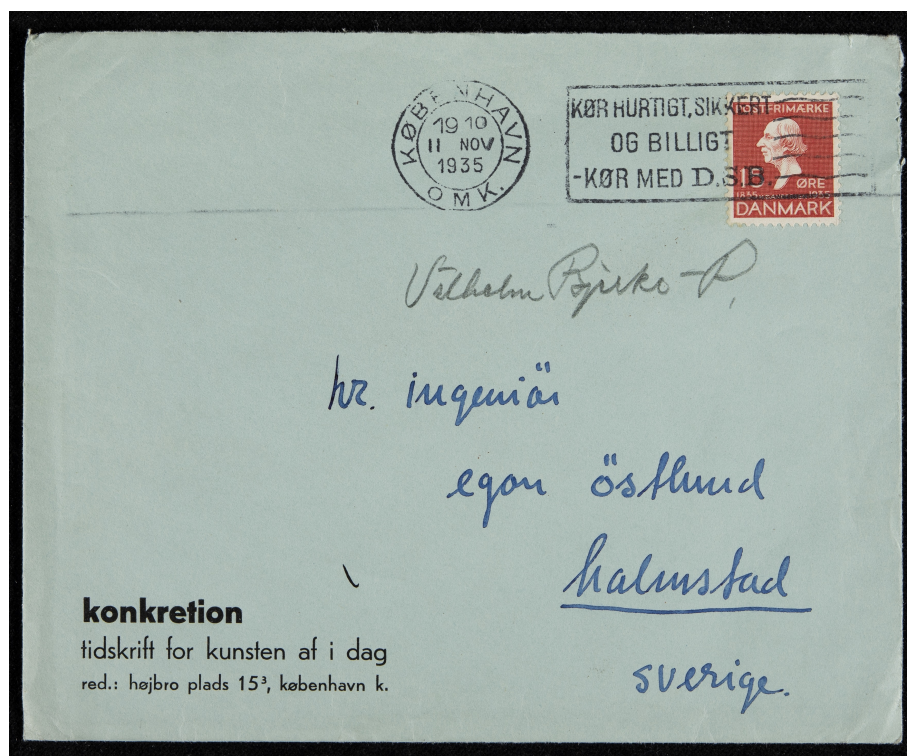 KØBENHAVN
19 10
11 NOV
1935
OMK.
KØR HURTIGT, SIKKERT
OG BILLIGT
-KØR MED D.S.B.
POSTFRIMÆRKE
ØRE
1835 1935
DANMARK
Vilhelm Bjerke-P,
hr. ingeniör
egon östlund
halmstad
sverige.
konkretion
tidskrift for kunsten af i dag
red.: højbro plads 15³, københavn k.